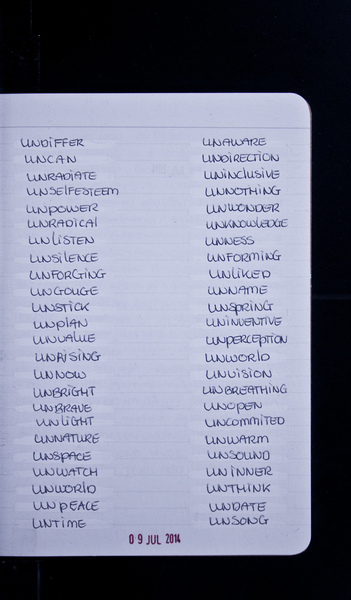 UNDIFFER
UNCAN
UNRADIATE
UNSELFESTEEM
UNPOWER
UNRADICAL
UNLISTEN
UNSILENCE
UNFORGING
UNGOUGE
UNSTICK
UNPLAN
UNVALUE
UNRISING
UNNOW
UNBRIGHT
UNBRAVE
UNLIGHT
UNNATURE
UNSPACE
UNWATCH
UNWORLD
UNPEACE
UNTIME
UNAWARE
UNDIRECTION
UNINCLUSIVE
UNNOTHING
UNWONDER
UNKNOWLEDGE
UNNESS
UNFORMING
UNLIKED
UNNAME
UNSPRING
UNINVENTIVE
UNPERCEPTION
UNWORLD
UNVISION
UNBREATHING
UNOPEN
UNCOMMITED
UNWARM
UNSOUND
UNINNER
UNTHINK
UNDATE
UNSONG
09 JUL 2014